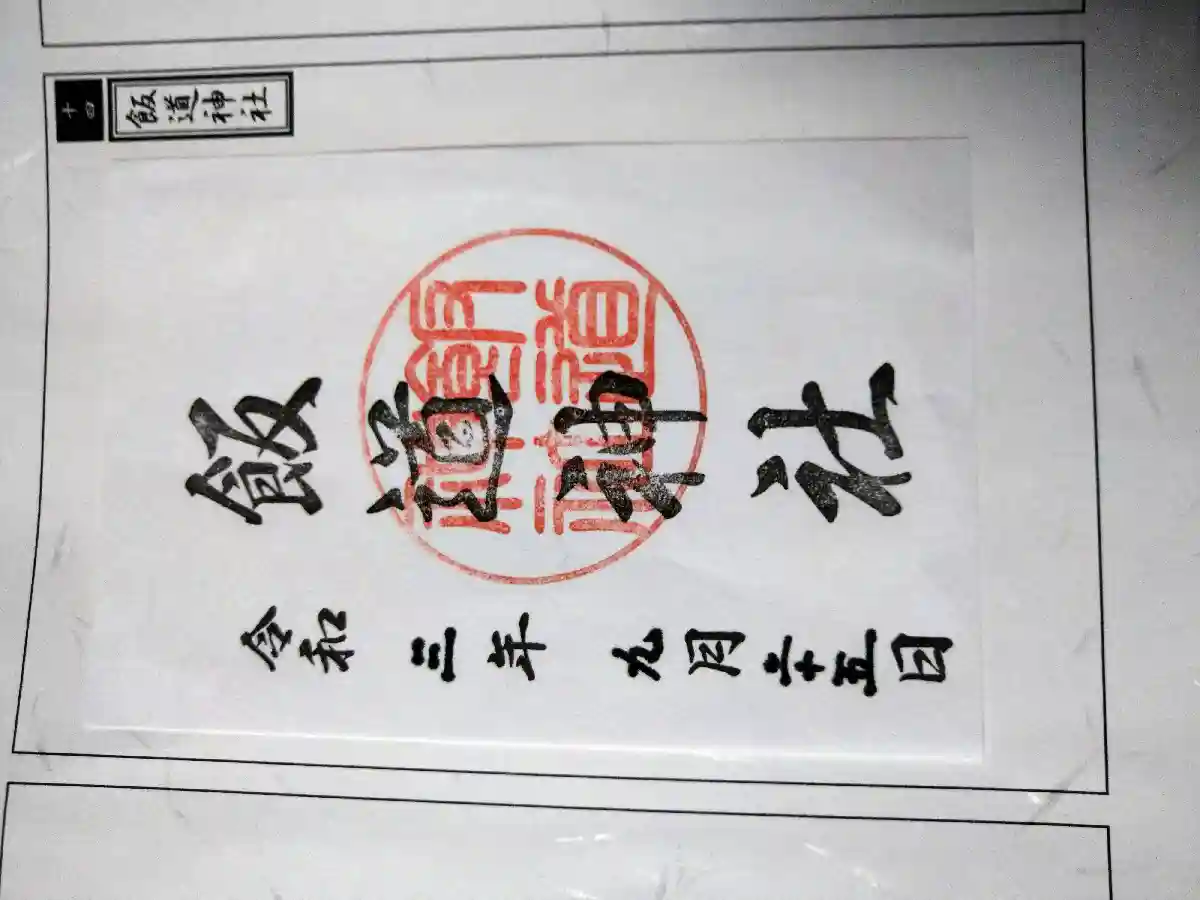 十四
飯道神社
飯道神社
飯道神社
令和三年九月二十五日